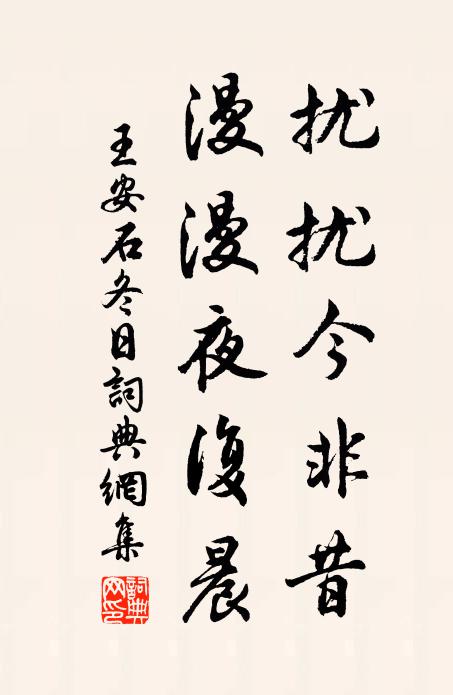 扰扰今非昔
漫漫夜復晨
王安石冬日詞典網集
詞典網印